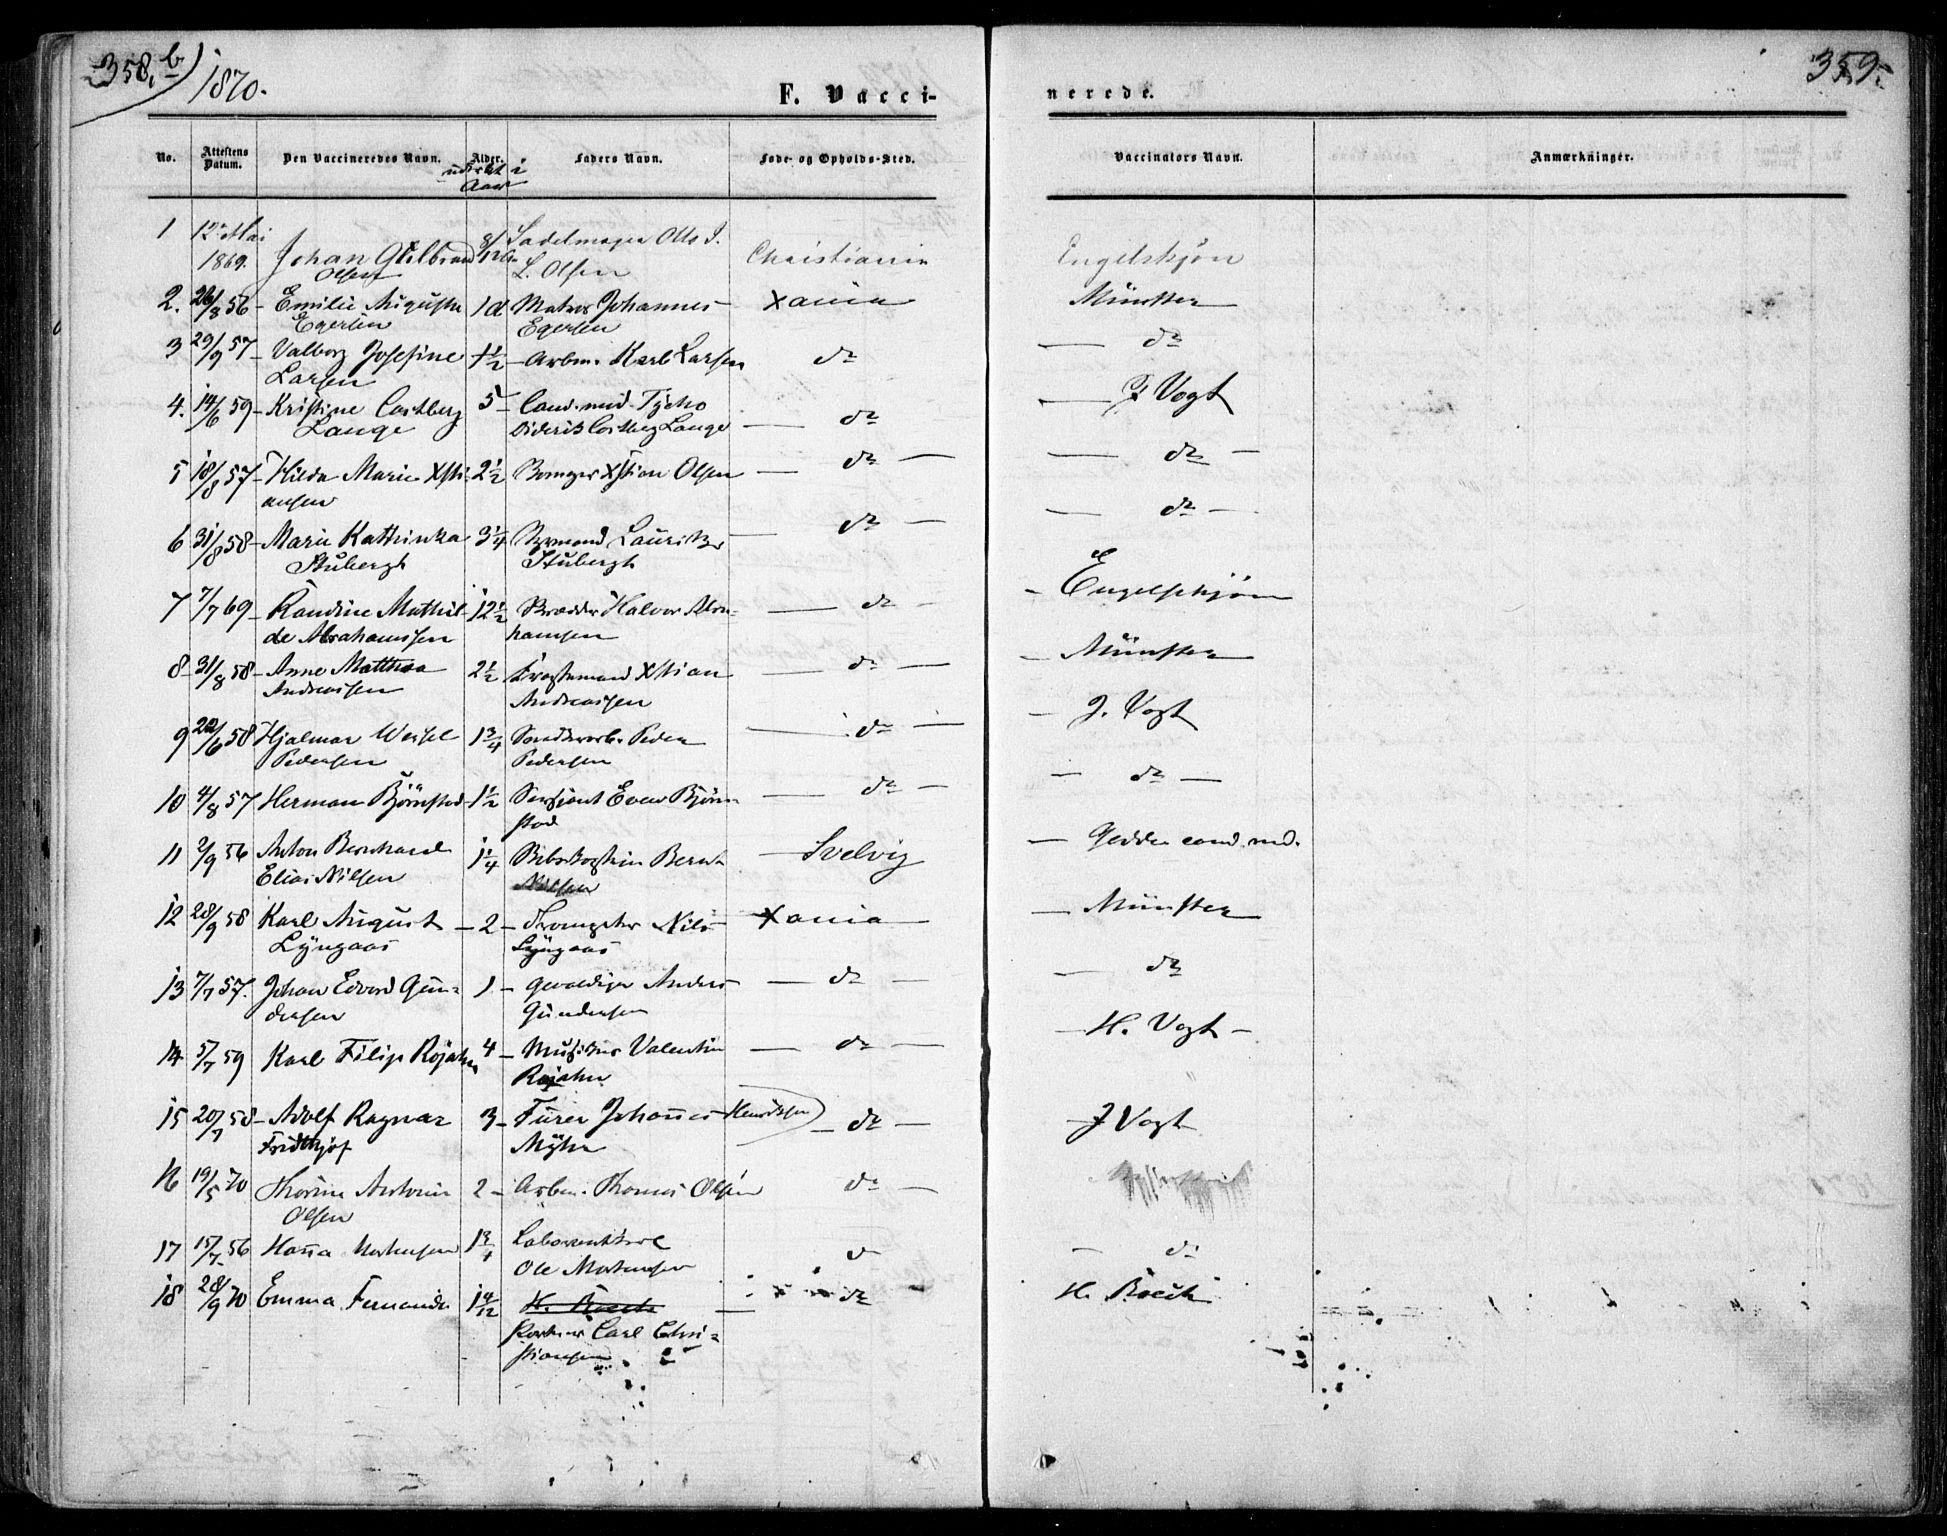 358, b
1870.
F. Vacci-
nerede.
359.
No.
Attestens Datum.
Den Vaccineredes Navn.
Alder. udtrykt i Aar
Faders Navn.
Føde- og Opholds-Sted.
Vaccinators Navn.
Anmærkninger.
1 12te Mai Sadelmager Otto J.
1869. Johan Gulbrand 8/12 L. Olsen Christiania Engelskjøn
Olsen
2. 26/8 56 – Emilie Auguste 1 Matros Johannes Xania Münster
Egersen Egersen
3 29/9 57 – Valborg Josefine 1½ – Arbm. Karl Larsen do do
Larsen
4. 14/6 59 – Kristine Castberg 5 – Cand. med. Tycho do J Vogt
Lange Diderik Castberg Lange
5 18/8 57 – Hilda Marie Xsti- 2½ Xstian Olsen – do – do –
ansen
6 31/8 58 – Marie Kathinka 3¼ Laurits – do – do –
Stubergh Stubergh
7 7/7 69 – Randine Mathil- 12½ Skrædder Halvor Abra- – do – – Engelskjøn
de Abrahamsen hamsen
8 – 31/8 58 – Anne Mathea 2½ Xstian – do – – Münster
Andreassen Andreassen
9 22/6 58 Hjalmar Wessel 1¾ Peder – do – – J. Vogt
Pedersen Pedersen
10 4/8 57 Herman Bjørnstad 1½ Sersjant Even Bjørn- – do – – do –
stad
11 2/9 56 Anton Bernhard 1¼ Bernt – Svelvig – Gedde cand. med.
Elias Nilsen Nilsen
12 28/9 58 Karl August – 2 – Nils Xania – Münster
Lyngaas Lyngaas
13 7/7 57. Johan Edvard Gun- 1 – Gevaldiger Anders – do – – do
dersen Gundersen
14 5/7 59 Karl Filip Rojahn 4 – Musikus Valentin – do – – H. Vogt –
Rojahn
15 20/7 58 – Adolf Ragnar 3 – Furer Johannes Henriksen – do – J Vogt
Fridthjof Myhr
16 19/5 70 Thorine Antonie 2 – Arbm. Thomas Olsen do –
Olsen
17 15/7 56 Hanna Mortensen 1¾ Laborant d – do
Ole Mortensen
18 28/9 70 Emma Fernanda 1 4/12 H. Boeck – do H. Boeck
Portner Carl Chri-
stiansen